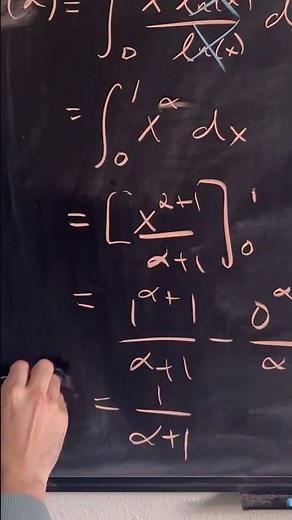 (α) = ∫₀ x ln(x) / ln(x) d
= ∫₀¹ x^α dx
= [x^(α+1) / (α+1)]₀¹
= 1^(α+1) / (α+1) - 0^α / α
= 1 / (α+1)